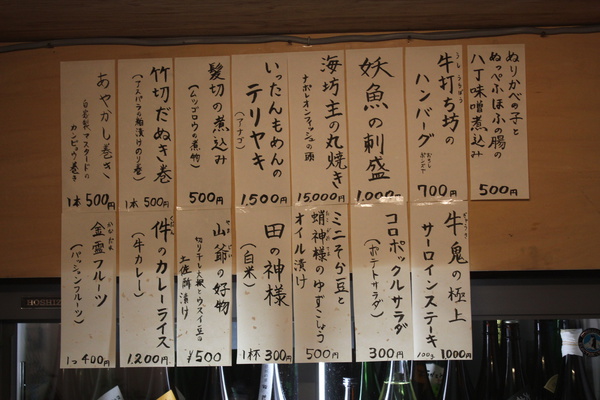 ぬりかべの子と
ぬっぺふほふの腸の
八丁味噌煮込み
500円
うしうちぼう
牛打ち坊の
ハンバーグ
おろしポンズで
700円
妖魚の刺盛
1,000円
海坊主の丸焼き
ナポレオンフィッシュの頭
15,000円
いったんもめんの
テリヤキ
(アナゴ)
1,500円
髪切の煮込み
(ムツゴロウの煮物)
500円
竹切だぬき巻
(アスパラの麹漬けのり巻)
1本 500円
あやかし巻き
自家製マスタードの
カンピョウ巻き
1本 500円
ぎゅうき
牛鬼の極上
サーロインステーキ
100g 1000円
コロポックルサラダ
(ポテトサラダ)
300円
ミニそら豆と
蛸神様のゆずこしょう
オイル漬け
500円
田の神様
(白米)
1杯 300円
山爺の好物
切り干し大根とウスイ豆の
土佐酢漬け
¥500
くだん
件のカレーライス
(牛カレー)
1,200円
かねだま
金霊フルーツ
(パッションフルーツ)
1つ 400円
HOSHIZ